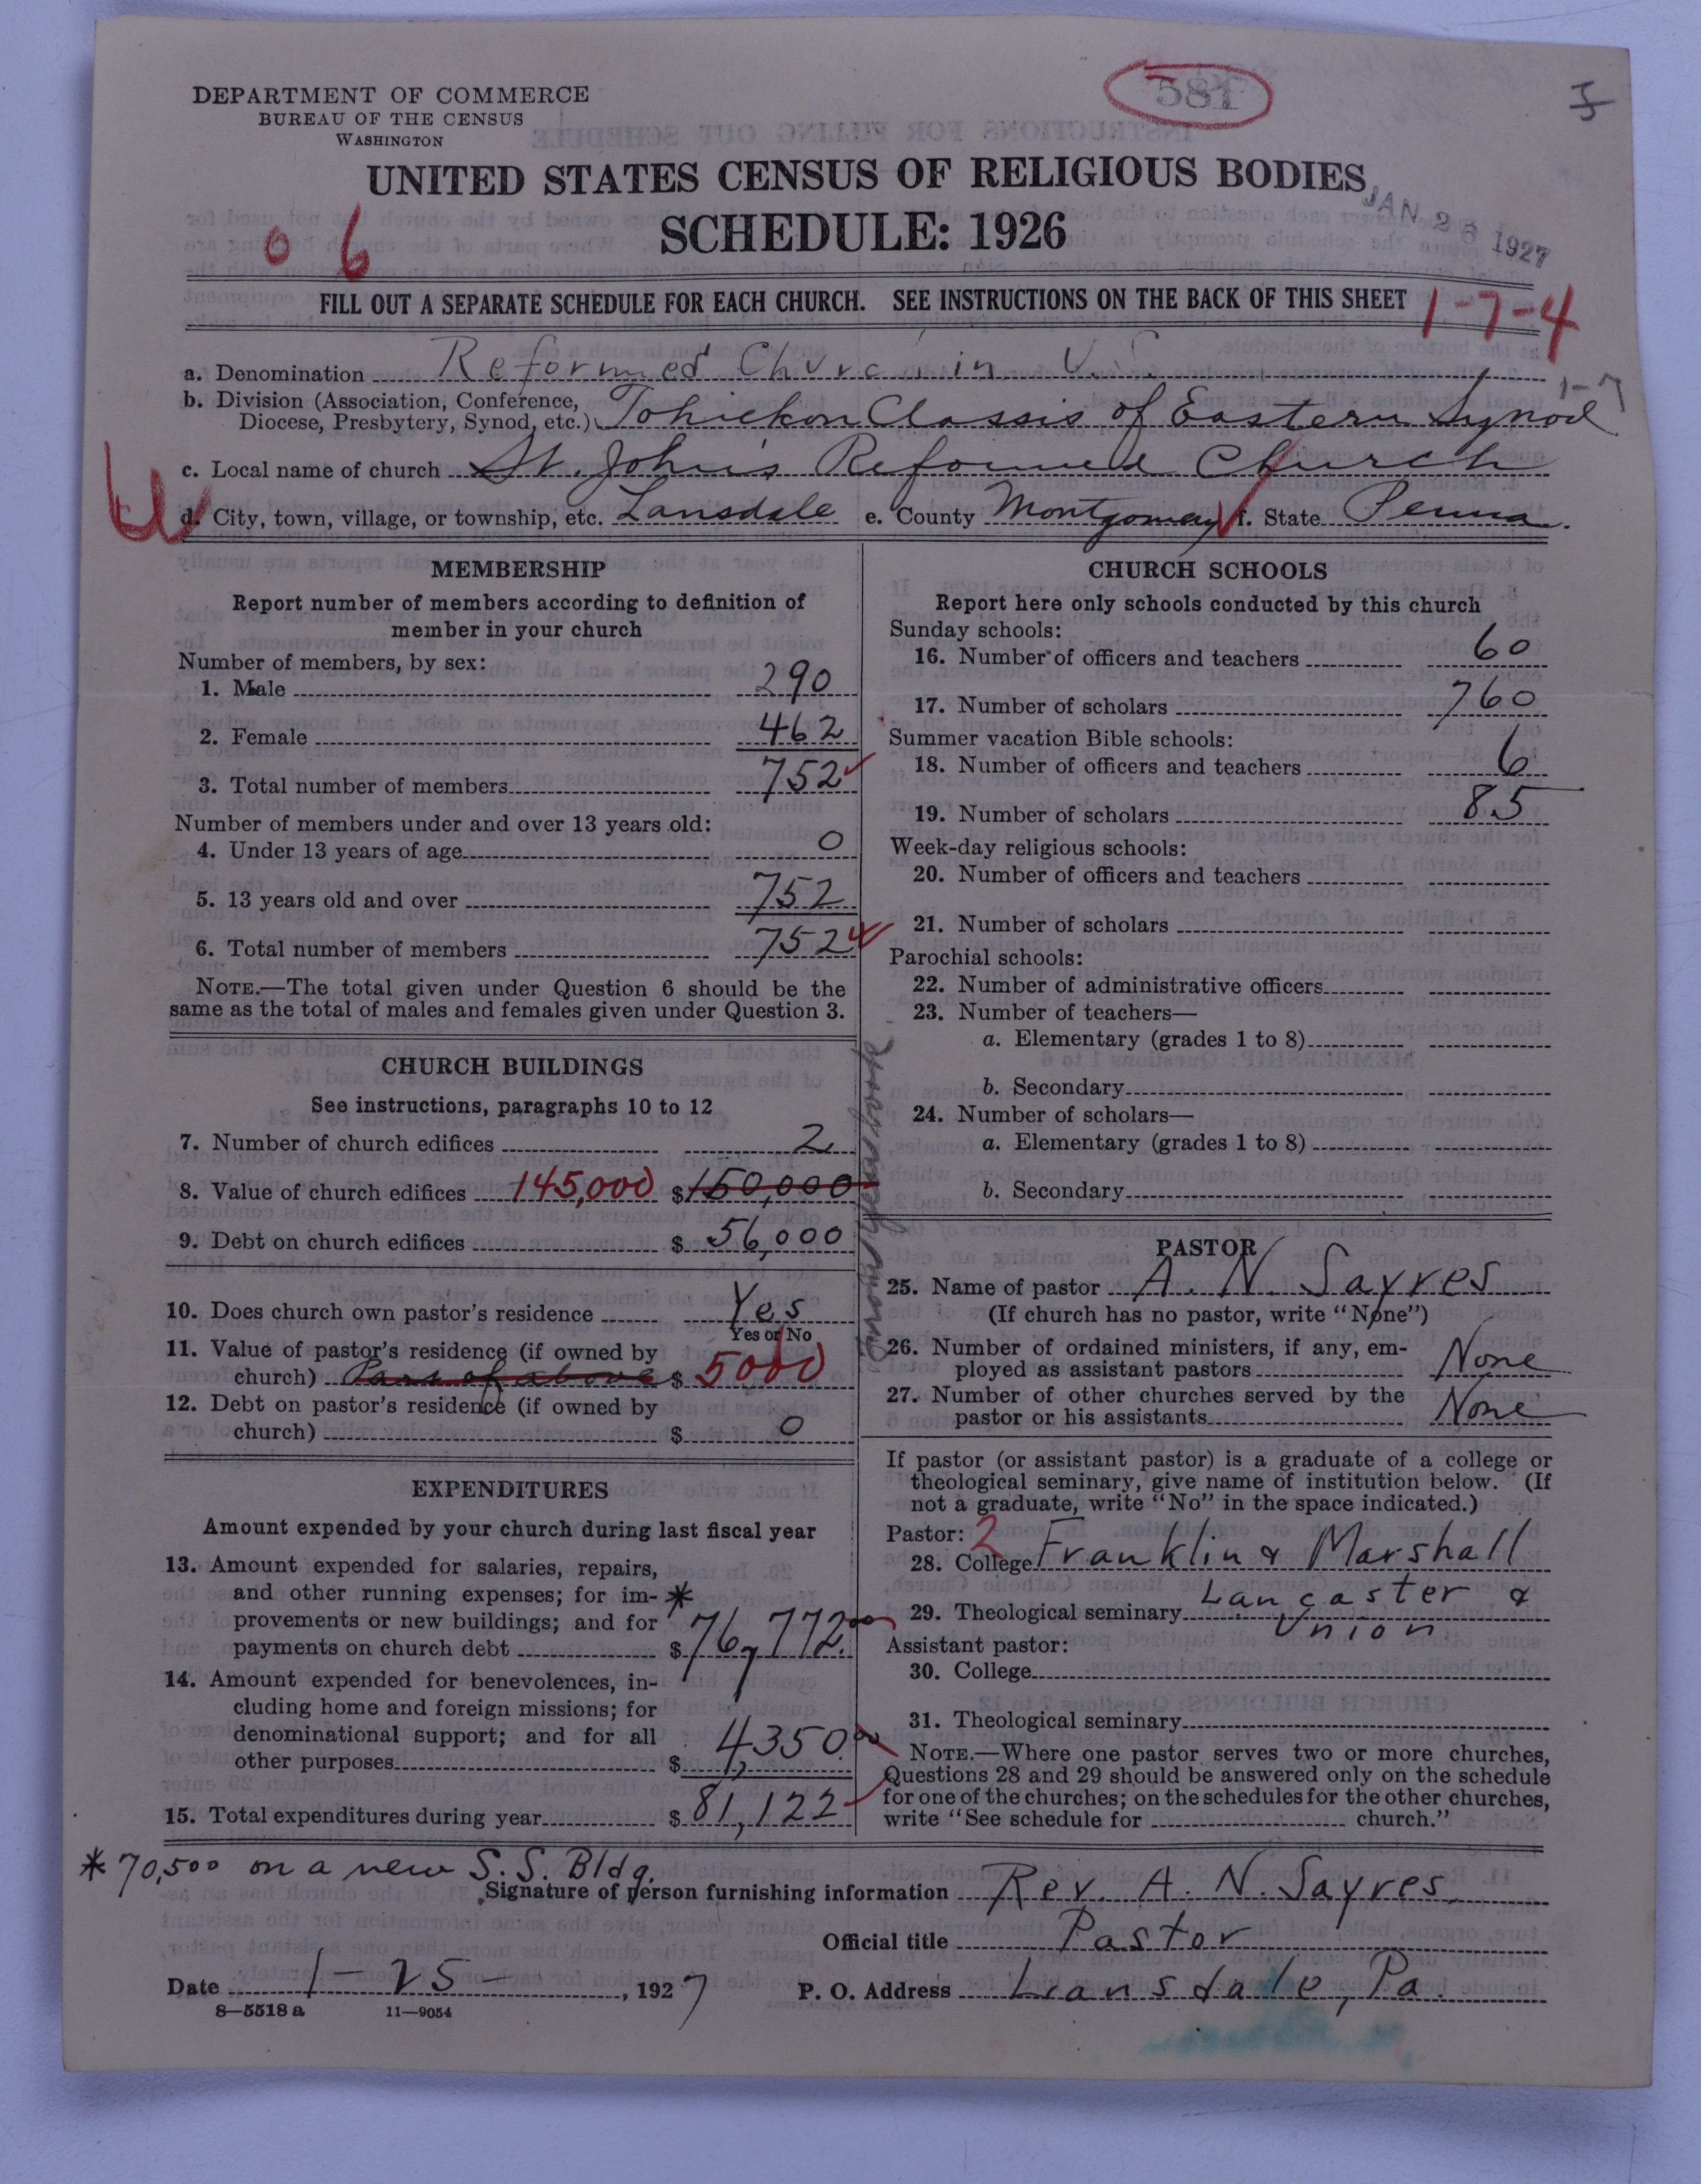 581
DEPARTMENT OF COMMERCE
BUREAU OF THE CENSUS
WASHINGTON
UNITED STATES CENSUS OF RELIGIOUS BODIES
JAN 26 1927
SCHEDULE: 1926
0 6
FILL OUT A SEPARATE SCHEDULE FOR EACH CHURCH. SEE INSTRUCTIONS ON THE BACK OF THIS SHEET
1-7-4
a. Denomination Reformed Church in U.S.
1-7
b. Division (Association, Conference, Diocese, Presbytery, Synod, etc.) Tohickon Classis of Eastern Synod
c. Local name of church St. John's Reformed Church
d. City, town, village, or township, etc. Lansdale e. County Montgomery f. State Penna.
MEMBERSHIP
Report number of members according to definition of
member in your church
Number of members, by sex:
1. Male 290
2. Female 462
3. Total number of members 752
Number of members under and over 13 years old:
4. Under 13 years of age 0
5. 13 years old and over 752
6. Total number of members 752
NOTE.—The total given under Question 6 should be the
same as the total of males and females given under Question 3.
CHURCH BUILDINGS
See instructions, paragraphs 10 to 12
7. Number of church edifices 2
8. Value of church edifices 145,000 $150,000
9. Debt on church edifices $ 56,000
10. Does church own pastor's residence Yes
Yes or No
11. Value of pastor's residence (if owned by
church) Part of above $ 5000
12. Debt on pastor's residence (if owned by
church) $ 0
EXPENDITURES
Amount expended by your church during last fiscal year
13. Amount expended for salaries, repairs,
and other running expenses; for im- *
provements or new buildings; and for
payments on church debt $ 76,772.00
14. Amount expended for benevolences, in-
cluding home and foreign missions; for
denominational support; and for all
other purposes $ 4,350.00
15. Total expenditures during year $ 81,122
CHURCH SCHOOLS
Report here only schools conducted by this church
Sunday schools:
16. Number of officers and teachers 60
17. Number of scholars 760
Summer vacation Bible schools:
18. Number of officers and teachers 6
19. Number of scholars 85
Week-day religious schools:
20. Number of officers and teachers
21. Number of scholars
Parochial schools:
22. Number of administrative officers
23. Number of teachers—
a. Elementary (grades 1 to 8)
b. Secondary
24. Number of scholars—
a. Elementary (grades 1 to 8)
b. Secondary
PASTOR
25. Name of pastor A. N. Sayres
(If church has no pastor, write "None")
26. Number of ordained ministers, if any, em-
ployed as assistant pastors None
27. Number of other churches served by the
pastor or his assistants None
If pastor (or assistant pastor) is a graduate of a college or
theological seminary, give name of institution below. (If
not a graduate, write "No" in the space indicated.)
Pastor: 2
28. College Franklin & Marshall
29. Theological seminary Lancaster &
Union
Assistant pastor:
30. College
31. Theological seminary
NOTE.—Where one pastor serves two or more churches,
Questions 28 and 29 should be answered only on the schedule
for one of the churches; on the schedules for the other churches,
write "See schedule for church."
* 70,500 on a new S. S. Bldg.
Signature of person furnishing information Rev. A. N. Sayres
Official title Pastor
Date 1-25-, 1927 P. O. Address Lansdale, Pa.
8—5518 a 11—9054